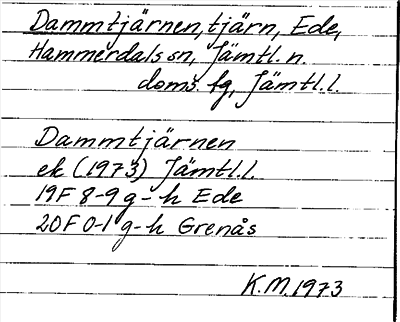 Dammtjärnen, tjärn, Ede,
Hammerdals sn, Jämtl. n.
doms. fg, Jämtl. l.
Dammtjärnen
ek (1973) Jämtl. l.
19F 8-9 g-h Ede
20F 0-1 g-h Grenås
K.M. 1973